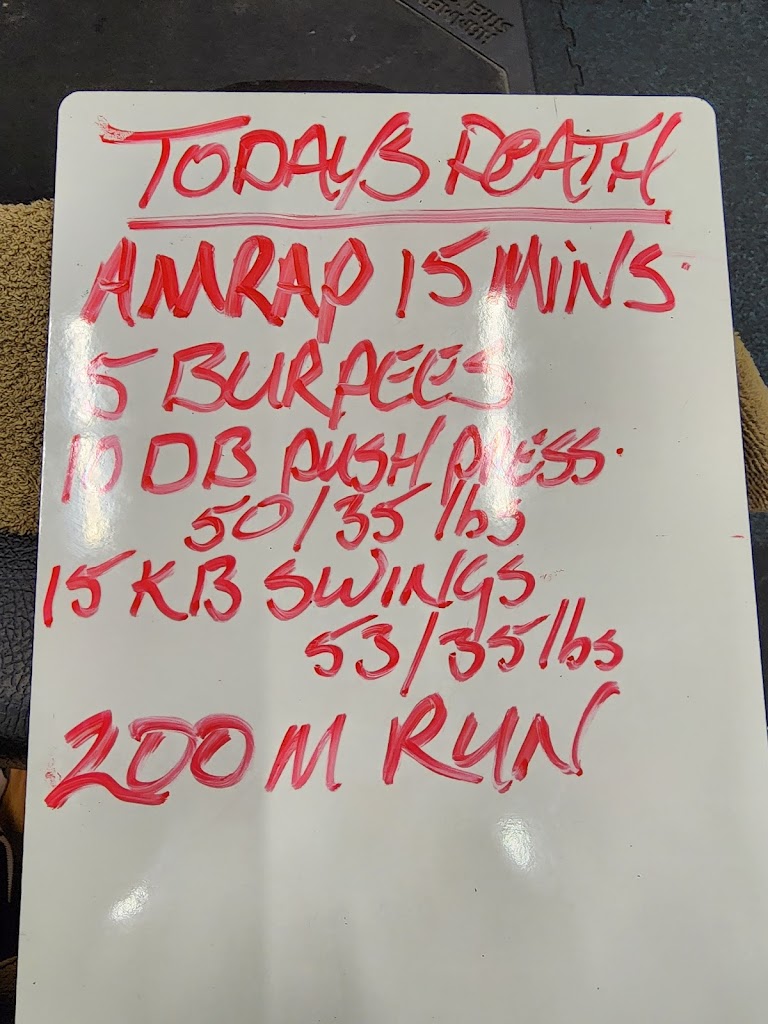 TODAY'S DEATH
AMRAP 15 MINS.
5 BURPEES
10 DB PUSH PRESS.
50/35 lbs
15 KB SWINGS
53/35 lbs
200 M RUN